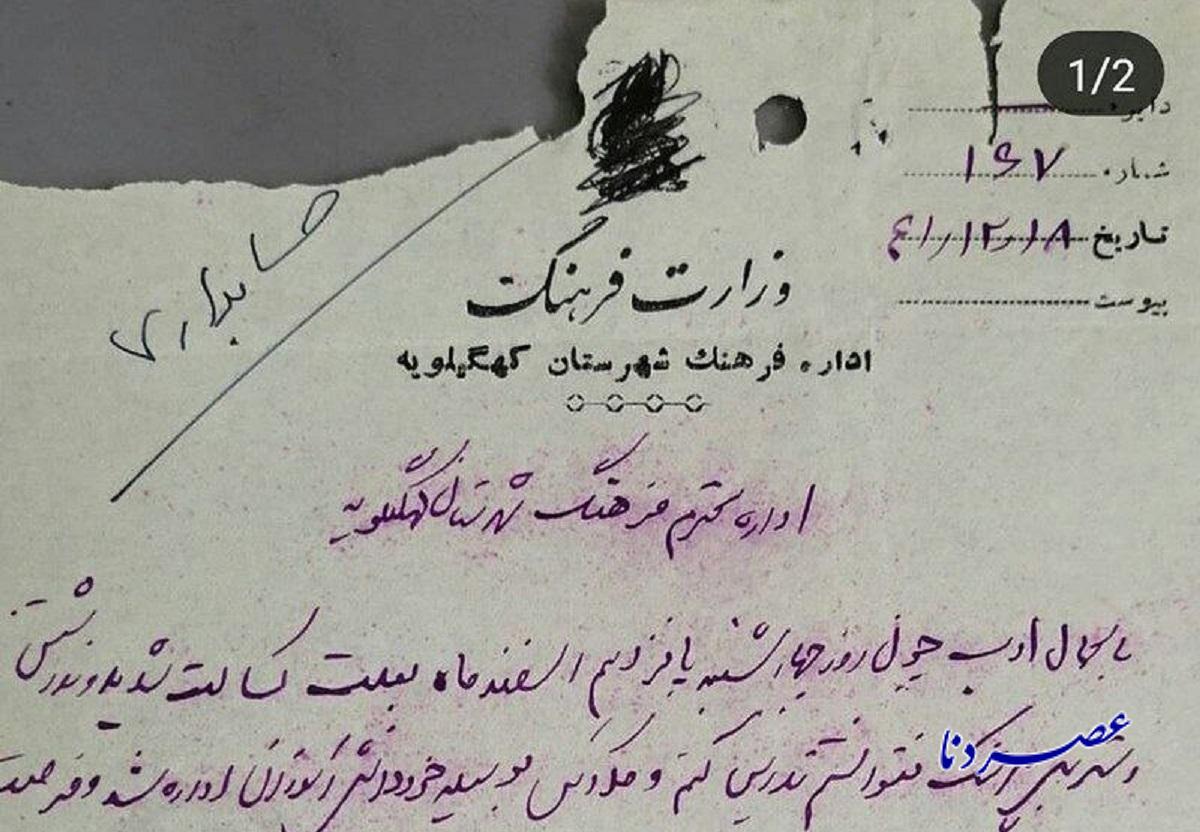 1/2
دایره
شماره ۱۶۷
تاریخ ۴۱/۱۲/۱۸
پیوست
حسابداری
وزارت فرهنگ
اداره فرهنك شهرستان کهگیلویه
اداره محترم فرهنگ شهرستان کهگیلویه
با کمال ادب چون روز چهارشنبه پانزدهم اسفند ماه بعلت کسالت شدید و نداشتن
نتوانستم تدریس کنم و کلاس بوسیله خود دانش آموزان اداره شد و
عصر دنا